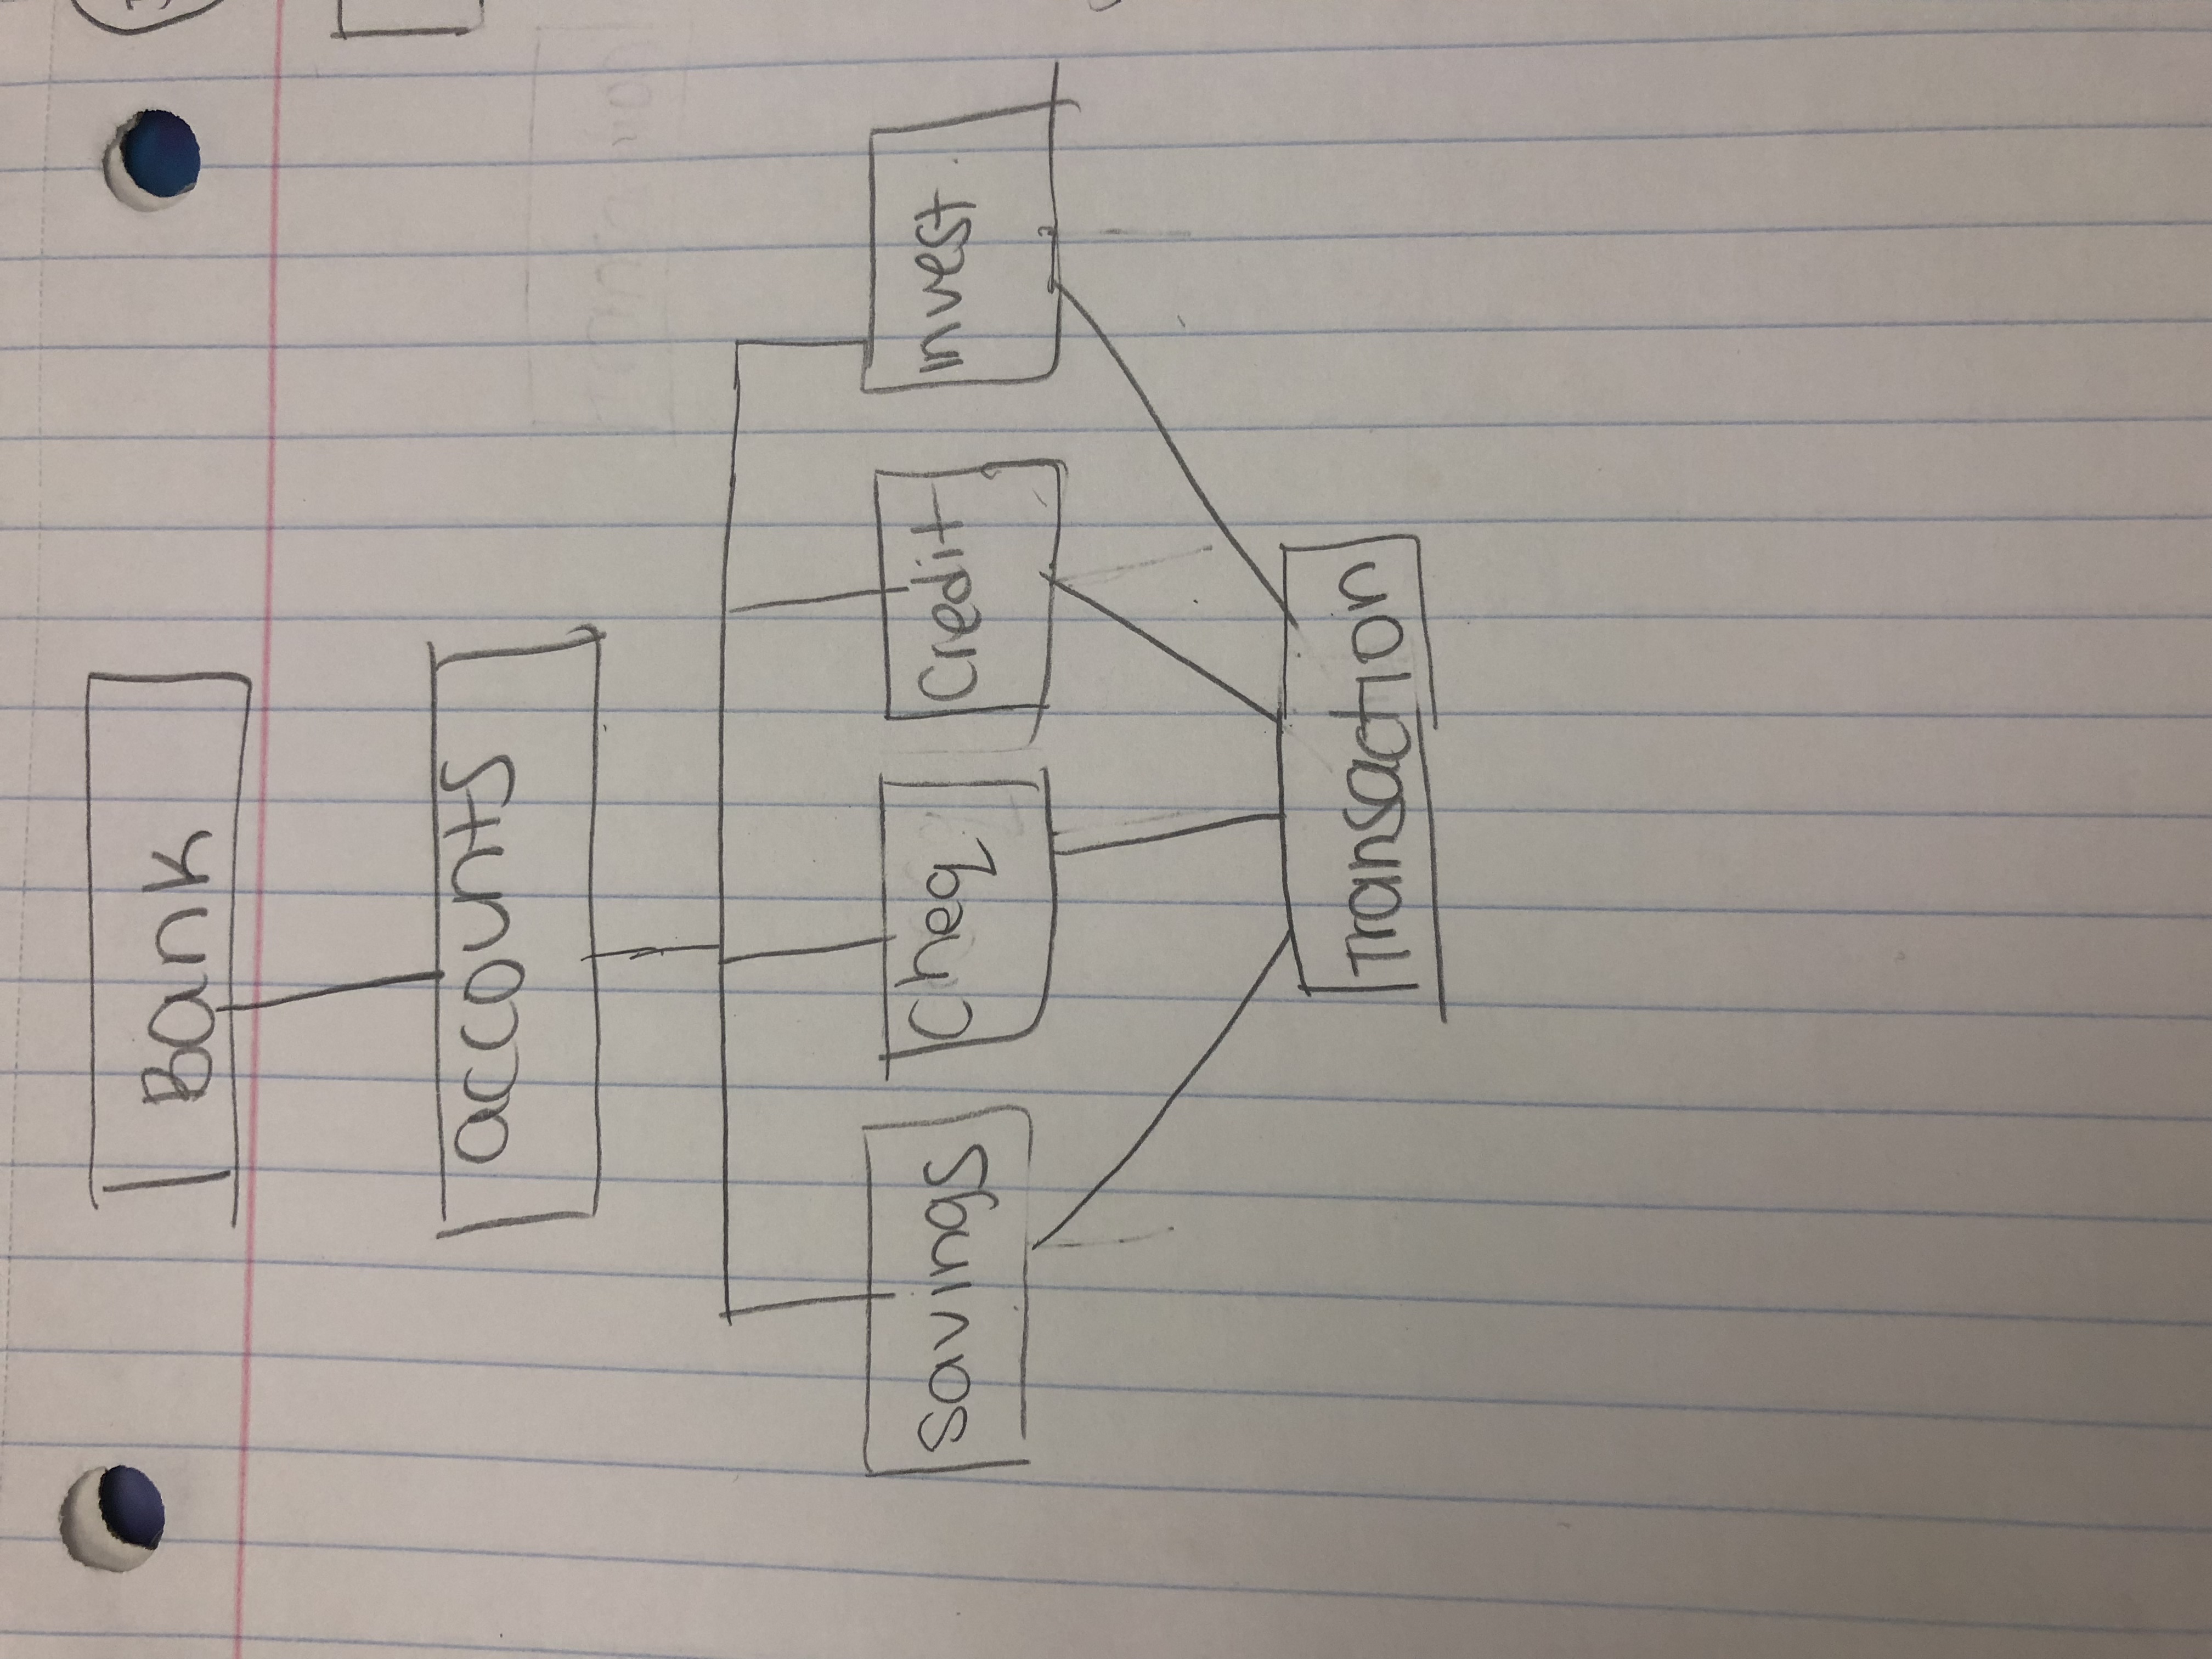 Bank
accounts
savings
cheq
credit
invest
Transaction